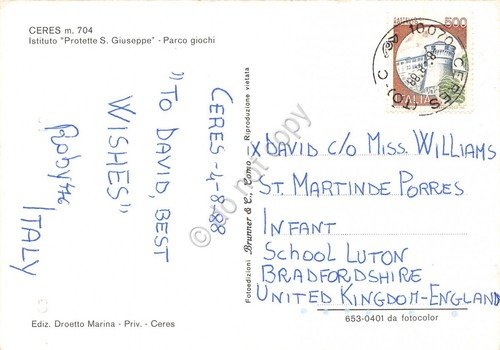 CERES m. 704
Istituto "Protette S. Giuseppe" - Parco giochi
CERES - 4-8-88
"TO DAVID, BEST
WISHES"
ITALY
Fotoedizioni Brunner & C., Como - Riproduzione vietata
500
ITALIA
10070 CERES (TO)
do not copy
x DAVID C/O MISS. WILLIAMS
ST. MARTINDE PORRES
INFANT
SCHOOL LUTON
BRADFORDSHIRE
UNITED KINGDOM-ENGLAND
Ediz. Droetto Marina - Priv. - Ceres
653-0401 da fotocolor